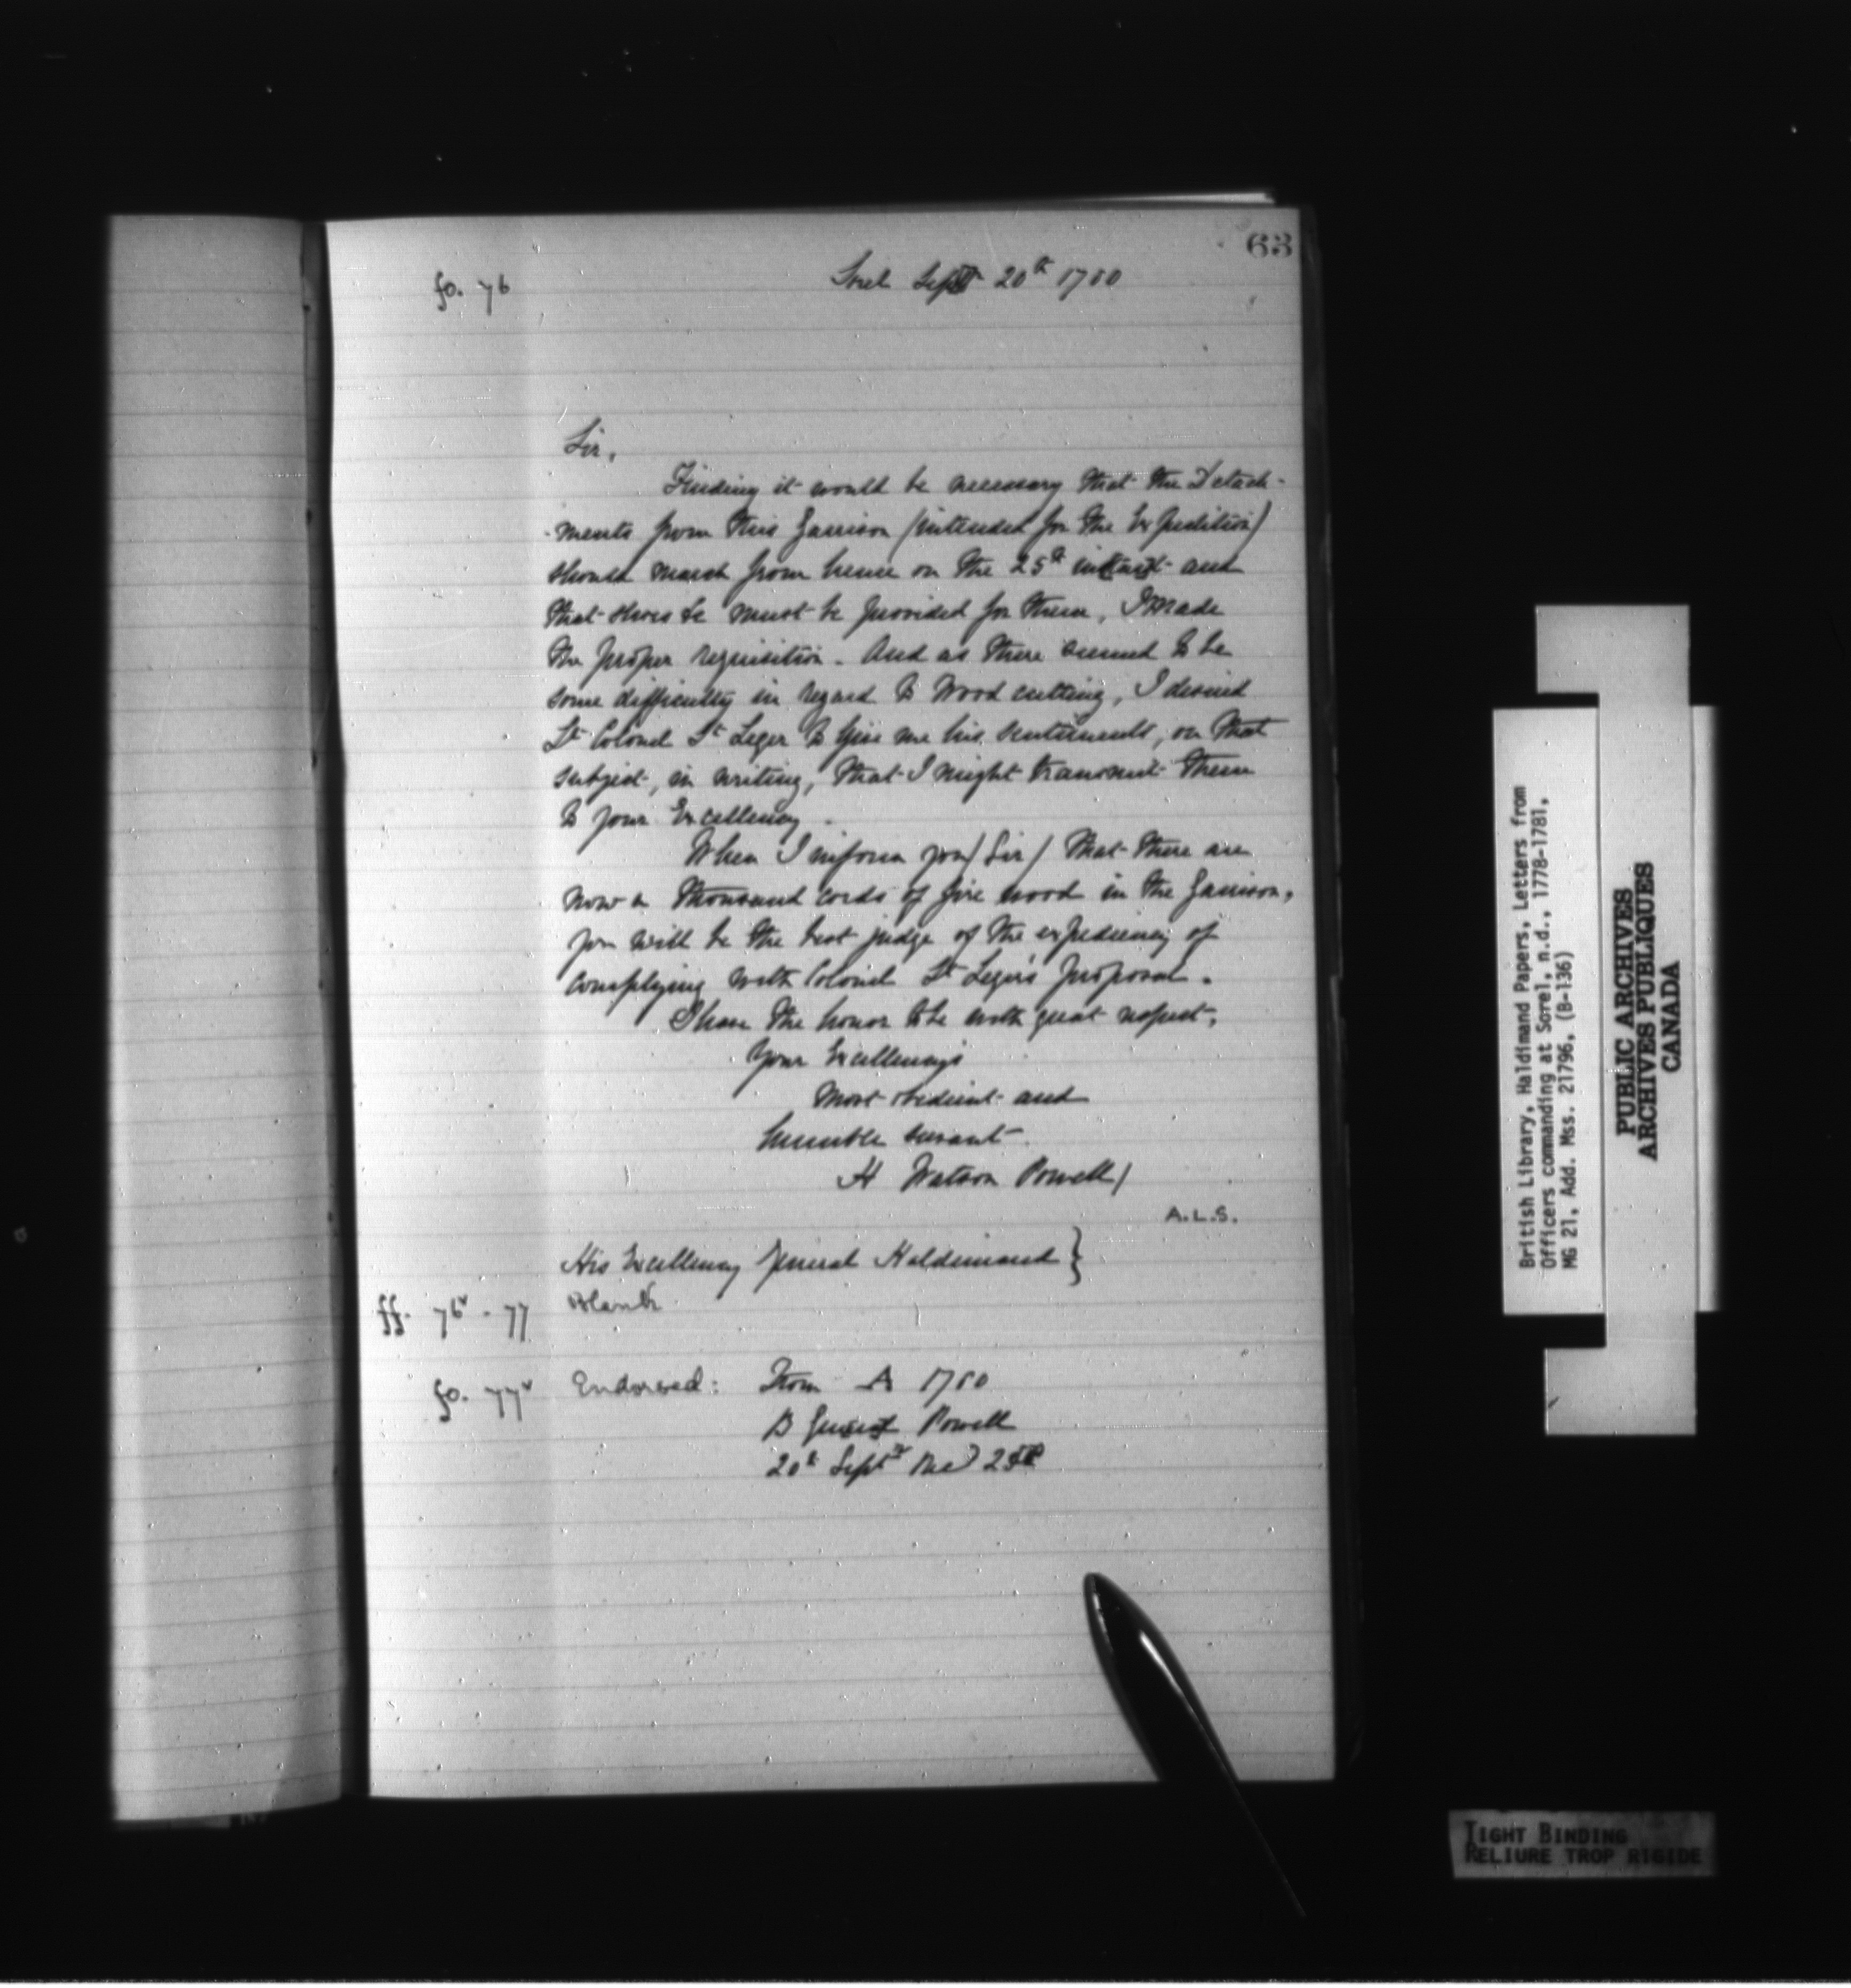 63
fo. 76
Sorel Sept 20th 1780
Sir,
Finding it would be necessary that the Detach-
-ments from this Garrison (intended for the Expedition)
should march from hence on the 25th instant and
that shoes &c must be provided for them, I made
the proper requisition. And as there seemed to be
some difficulty in regard to Wood cutting, I desired
Lt Colonel St Leger to give me his sentiments, on that
subject, in writing, that I might transmit them
to your Excellency.
When I inform you (Sir) that there are
now a thousand cords of fire wood in the Garrison,
you will be the best judge of the expediency of
complying with Colonel St Leger's proposal.
I have the honor to be with great respect,
Your Excellency's
Most obedient and
humble servant
H Watson Powell
A.L.S.
His Excellency General Haldimand }
ff. 76v - 77 Blank
fo. 77v Endorsed: From A 1780
B General Powell
20th Septr Recd
British Library, Haldimand Papers, Letters from
Officers commanding at Sorel, n.d., 1778-1781,
MG 21, Add. Mss. 21796, (B-136)
PUBLIC ARCHIVES
ARCHIVES PUBLIQUES
CANADA
TIGHT BINDING
RELIURE TROP RIGIDE